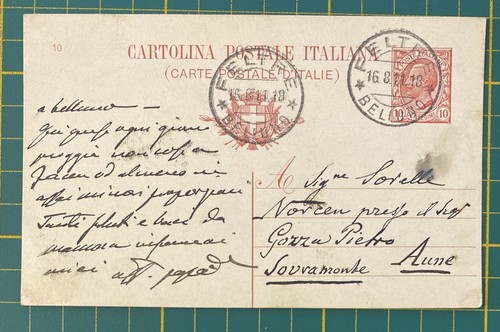 10
CARTOLINA POSTALE ITALIANA
(CARTE POSTALE D'ITALIE)
FELTRE
16.8.11.18
BELLUNO
FELTRE
16.8.11.18
BELLUNO
10 10
a belluno —
Qui quasi ogni giorno
pioggia non
ed almeno in
assai minori proporzioni
Tanti saluti e baci da
mamma
miei aff. papà
A Sigre Sorelle
Norcen presso il Sigr
Gozza Pietro
Sovramonte Aune